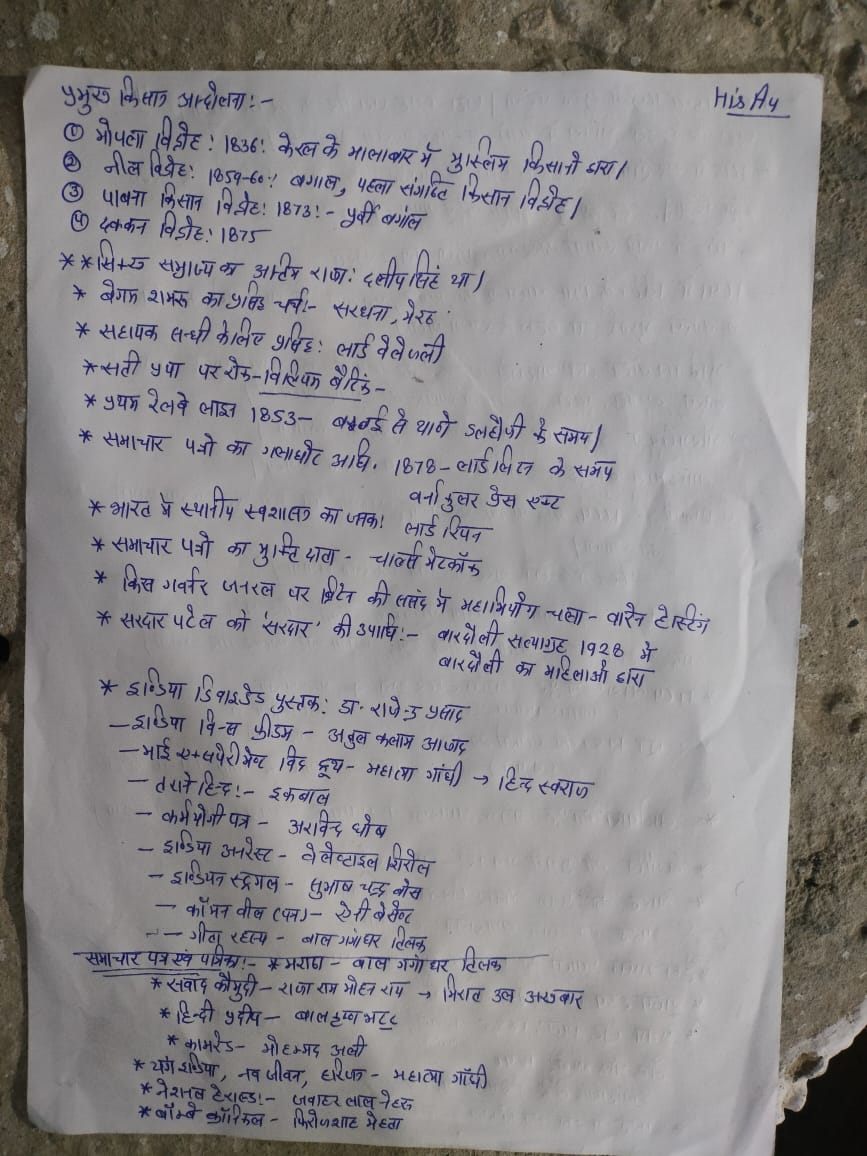 प्रमुख किसान आन्दोलन:-
HisAy
① मोपला विद्रोह: 1836: केरल के मालाबार में मुस्लिम किसानों द्वारा।
② नील विद्रोह: 1859-60: बंगाल, पहला संगठित किसान विद्रोह।
③ पाबना किसान विद्रोह: 1873:- पूर्वी बंगाल
④ दक्कन विद्रोह: 1875
** सिख समाज्य का अन्तिम राजा: दलीप सिंह था।
* बेगम शमरू का प्रसिद्ध चर्च:- सरधना, मेरठ
* सहायक सन्धी के लिए प्रसिद्ध: लार्ड वेलेजली
* सती प्रथा पर रोक - विलियम बैंटिंक -
* प्रथम रेलवे लाइन 1853 - बम्बई से थाणे डलहौजी के समय।
* समाचार पत्रों का गलाघोंट अधि. 1878 - लार्ड लिटन के समय
वर्नाकुलर प्रेस एक्ट
* भारत में स्थानीय स्वशासन का जनक: लार्ड रिपन
* समाचार पत्रों का मुक्ति दाता - चार्ल्स मेटकॉफ
* किस गवर्नर जनरल पर ब्रिटेन की संसद में महाभियोग चला - वारेन हेस्टिंग
* सरदार पटेल को 'सरदार' की उपाधि:- बारदौली सत्याग्रह 1928 में
बारदौली का महिलाओं द्वारा
* इण्डिया डिवाइडेड पुस्तक: डा. राजेन्द्र प्रसाद
- इण्डिया विन्स फ्रीडम - अबुल कलाम आजाद
- माई एक्सपेरीमेण्ट विद ट्रुथ - महात्मा गाँधी → हिन्द स्वराज
- तराने हिन्द:- इकबाल
- कर्मयोगी पत्र - अरविन्द घोष
- इण्डिया अनरेस्ट - वेलेण्टाइल शिरोल
- इण्डियन स्ट्रगल - सुभाष चन्द्र बोस
- कॉमन वील (पत्र) - ऐनी बेसेन्ट
- गीता रहस्य - बाल गंगाधर तिलक
समाचार पत्र एवं पत्रिका:- * मराठा - बाल गंगाधर तिलक
* संवाद कौमुदी - राजा राम मोहन राय → मिरात उल अखबार
* हिन्दी प्रदीप - बाल कृष्ण भट्ट
* कामरेड - मोहम्मद अली
* यंग इण्डिया, नव जीवन, हरिजन - महात्मा गाँधी
* नेशनल हेराल्ड:- जवाहर लाल नेहरू
* बॉम्बे क्रॉनिकल - फिरोजशाह मेहता